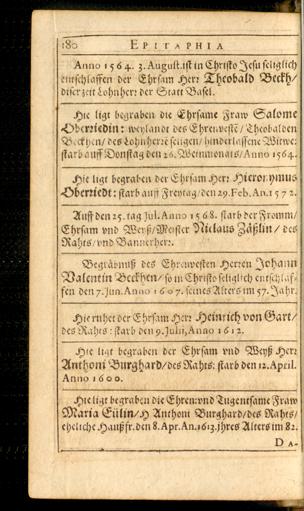 180 EPITAPHIA
Anno 1564. 3. August. ist in Christo Jesu seliglich
entschlaffen der Ehrsam Herr Theobald Beckh/
diser zeit Lohnherr der Statt Basel.
Hie ligt begraben die Ehrsame Fraw Salome
Oberriedin: weylandt des Ehrenveste/ Theobalden
Beckhen/ des Lohnherrē seligen/ hinderlassene Witwe:
starb auff Donstag den 26. Weinmonats/ Anno 1564.
Hie ligt begraben der Ehrsam Herr Hieronymus
Oberriedt: starb auff Freytag/ den 29. Feb. An. 1572.
Auff den 25. tag Jul. Anno 1568. starb der Fromm/
Ehrsam vnd Weyß/ Meister Niclaus Zäßlin/ des
Rahts/ vnd Bannerherr.
Begräbnuß des Ehrenvesten Herren Johann
Valentin Beckhen/ so in Christo seliglich entschlaf-
fen den 7. Jun. Anno 1607. seines Alters im 57. Jahr.
Hie ruhet der Ehrsam Herr Heinrich von Gart/
des Rahts: starb den 9. Julij, Anno 1612.
Hie ligt begraben der Ehrsam vnd Weyß Herr
Anthoni Burghard/ des Rahts: starb den 12. April.
Anno 1600.
Hie ligt begraben die Ehren: vnd Tugentsame Fraw
Maria Eülin/ H Anthoni Burghard/ des Rahts/
eheliche Haußfr. den 8. Apr. An. 1613. jhres Alters im 82.
DA-